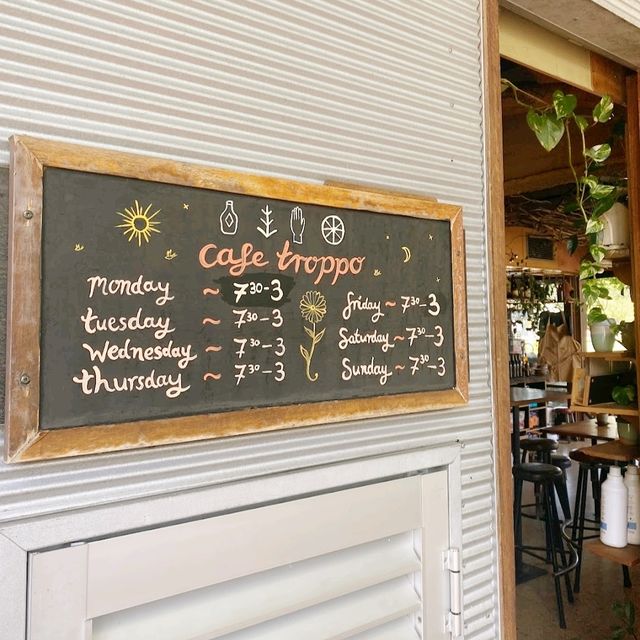 cafe troppo
Monday ~ 7³⁰-3
tuesday ~ 7³⁰-3
Wednesday ~ 7³⁰-3
thursday ~ 7³⁰-3
friday ~ 7³⁰-3
Saturday ~ 7³⁰-3
Sunday ~ 7³⁰-3